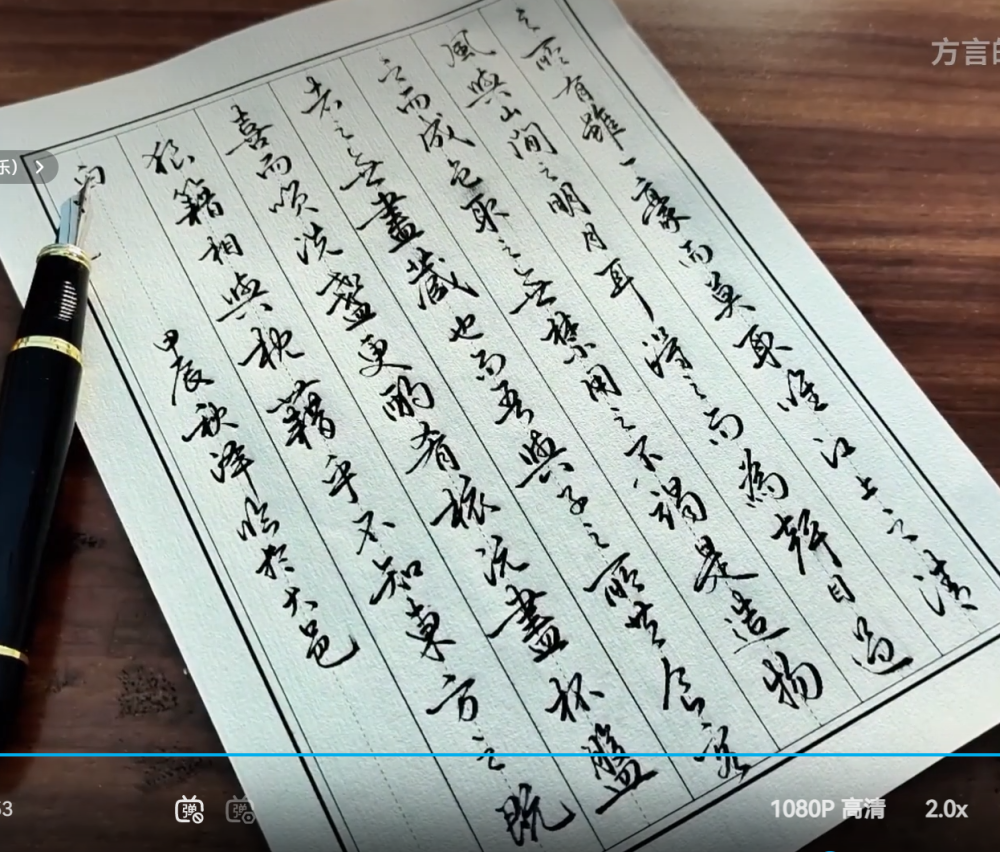 之所有雖一豪而莫取唯江上之清
風與山間之明月耳得之而為聲目遇
之而成色取之無禁用之不竭是造物
者之無盡藏也而吾與子之所共食客
喜而笑洗盞更酌肴核既盡杯盤
狼籍相與枕藉乎不知東方之既
白
甲辰秋澤臨於大邑
方言的
乐）
53
1080P 高清
2.0x